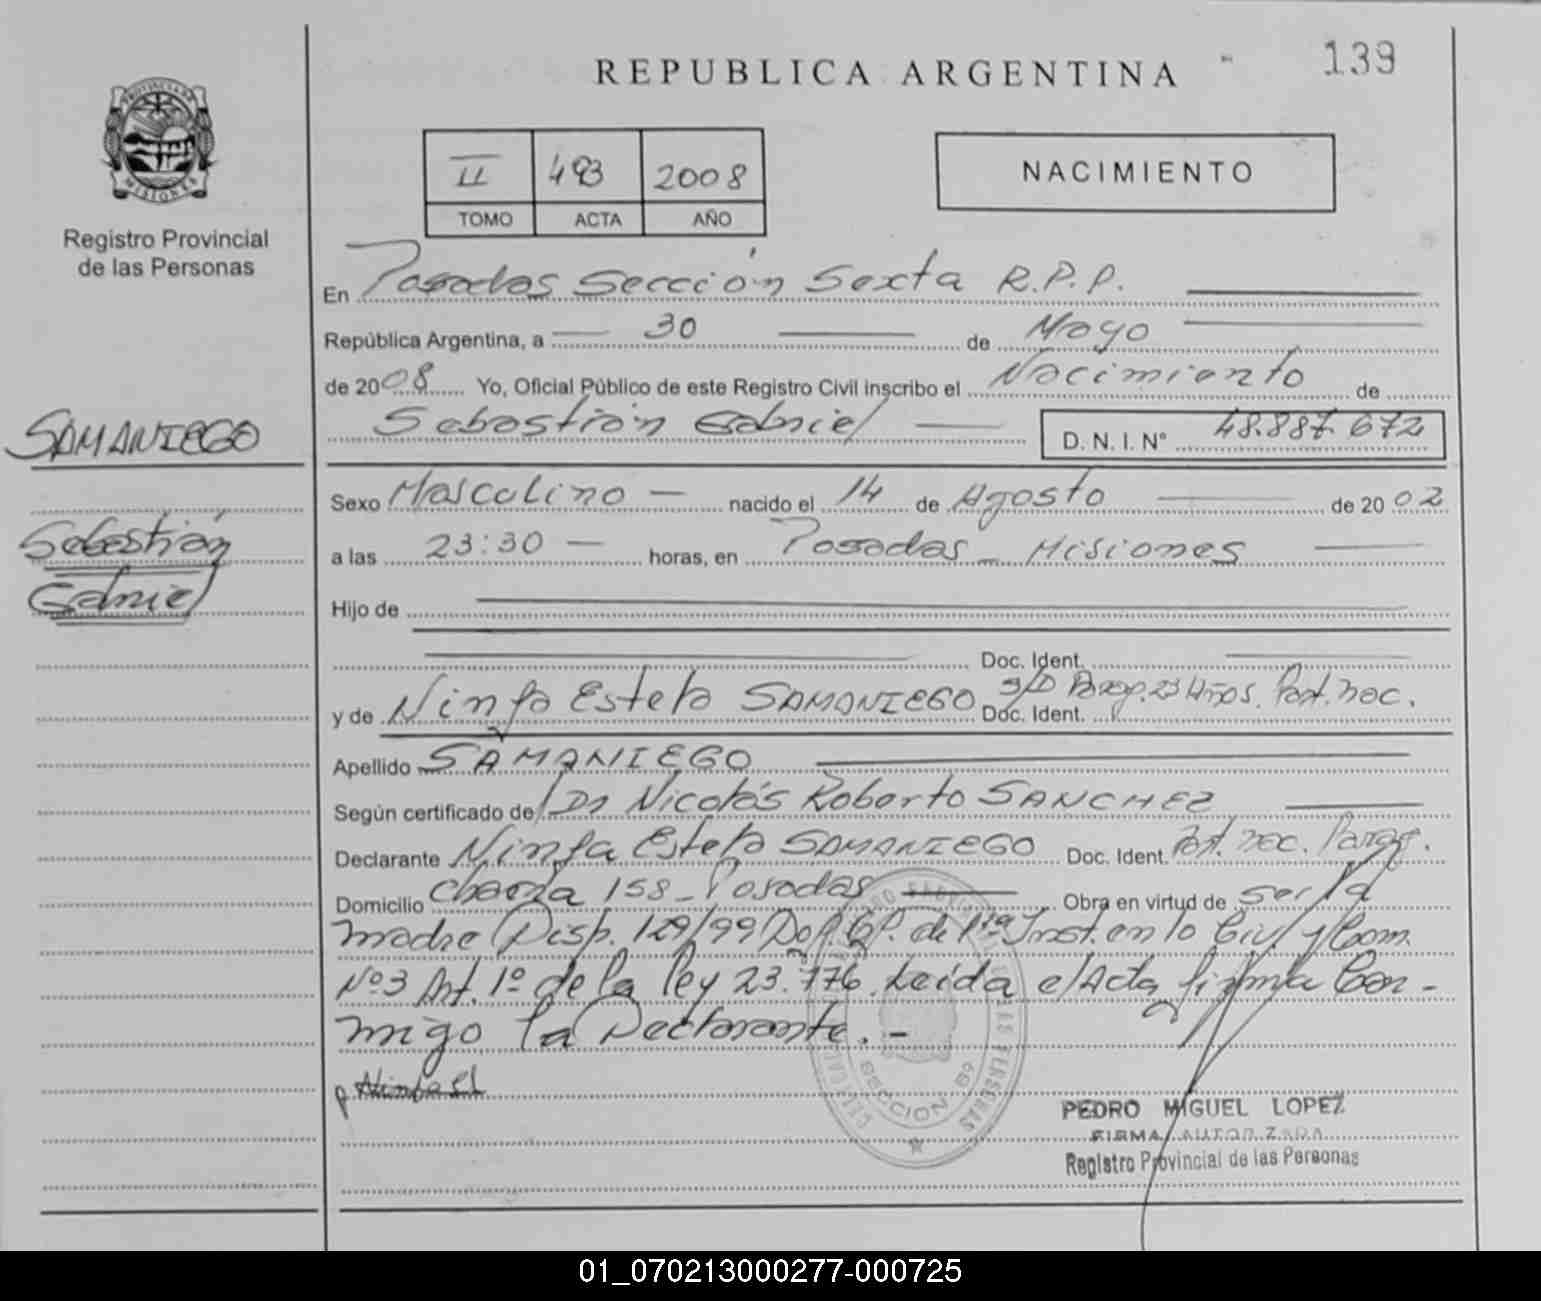 REPUBLICA ARGENTINA
139
PROVINCIA DE
MISIONES
Registro Provincial
de las Personas
II 493 2008
TOMO ACTA AÑO
NACIMIENTO
En Posadas Sección Sexta R.P.P.
República Argentina, a 30 de Mayo
de 2008 Yo, Oficial Público de este Registro Civil inscribo el Nacimiento de
Sebastián Gabriel D. N. I. N° 48.887.672
SAMANIEGO
Sebastián
Gabriel
Sexo Masculino nacido el 14 de Agosto de 2002
a las 23:30 horas, en Posadas - Misiones
Hijo de
Doc. Ident.
y de Ninfa Estela SAMANIEGO Doc. Ident. S/D Parag. 23 Años. Part. nac.
Apellido SAMANIEGO
Según certificado de Dr Nicolás Roberto SANCHEZ
Declarante Ninfa Estela SAMANIEGO Doc. Ident. Part. nac. Parag.
Domicilio Chacra 158 - Posadas Obra en virtud de ser la
madre Disp. 129/99 de 1ra Inst. en lo Civ. y Com.
Nº3 Art. 1º de la ley 23.776. Leida el Acta, firma Con-
migo la Declarante. -
SECCION 6ª
PEDRO MIGUEL LOPEZ
FIRMA AUTORIZADA
Registro Provincial de las Personas
01_070213000277-000725